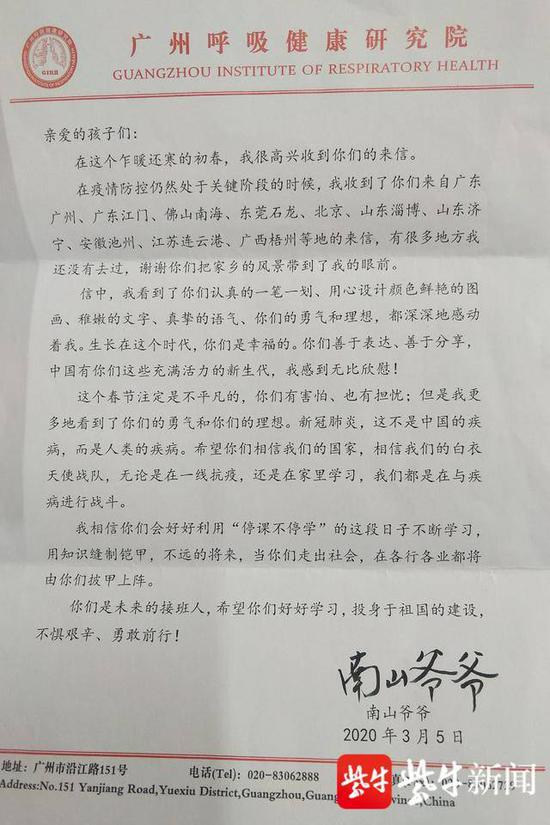 GIRH
广州呼吸健康研究院
GUANGZHOU INSTITUTE OF RESPIRATORY HEALTH
亲爱的孩子们：
在这个乍暖还寒的初春，我很高兴收到你们的来信。
在疫情防控仍然处于关键阶段的时候，我收到了你们来自广东
广州、广东江门、佛山南海、东莞石龙、北京、山东淄博、山东济
宁、安徽池州、江苏连云港、广西梧州等地的来信，有很多地方我
还没有去过，谢谢你们把家乡的风景带到了我的眼前。
信中，我看到了你们认真的一笔一划、用心设计颜色鲜艳的图
画、稚嫩的文字、真挚的语气、你们的勇气和理想，都深深地感动
着我。生长在这个时代，你们是幸福的。你们善于表达、善于分享，
中国有你们这些充满活力的新生代，我感到无比欣慰！
这个春节注定是不平凡的，你们有害怕、也有担忧；但是我更
多地看到了你们的勇气和你们的理想。新冠肺炎，这不是中国的疾
病，而是人类的疾病。希望你们相信我们的国家，相信我们的白衣
天使战队，无论是在一线抗疫，还是在家里学习，我们都是在与疾
病进行战斗。
我相信你们会好好利用“停课不停学”的这段日子不断学习，
用知识缝制铠甲，不远的将来，当你们走出社会，在各行各业都将
由你们披甲上阵。
你们是未来的接班人，希望你们好好学习，投身于祖国的建设，
不惧艰辛、勇敢前行！
南山爷爷
南山爷爷
2020年3月5日
地址：广州市沿江路151号 电话(Tel)：020-83062888
Address:No.151 Yanjiang Road,Yuexiu District,Guangzhou,China
紫牛 紫牛新闻